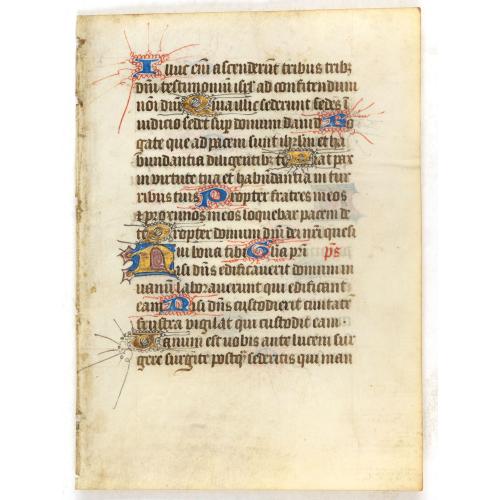 Illuc eni ascenderut tribus trib
dni testimoniu isrl ad confitendum
noi dni Quia illic sederunt sedes i
iudicio sedes sup domum dauid Ro
gate que ad pacem sunt ihrlm et ha
bundantia diligentibz te Fiat pax
in virtute tua et habundantia in tur
ribus tuis Propter fratres meos
et proximos meos loquebar pacem de
te Propter domum dni dei nri quesi
ui bona tibi Glia pri ps
Nisi dns edificauerit domum in
uanu laborauerunt qui edificant
eam Nisi dns custodierit ciuitate
frustra vigilat qui custodit eam
Uanum est uobis ante lucem sur
gere surgite postq sederitis qui man